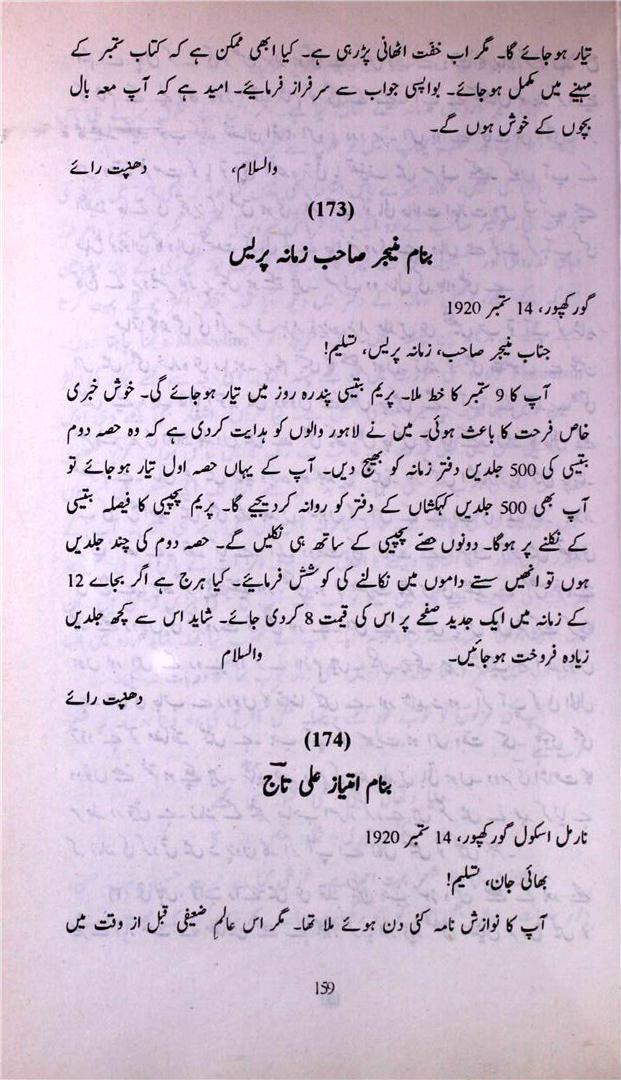 تیار ہوجائے گا۔ مگر اب خفّت اٹھانی پڑرہی ہے۔ کیا ابھی ممکن ہے کہ کتاب ستمبر کے
مہینے میں مکمل ہوجائے۔ بواپسی جواب سے سرفراز فرمائیے۔ امید ہے کہ آپ معہ بال
بچوں کے خوش ہوں گے۔
والسلام، دھنپت رائے
(173)
بنام منیجر صاحب زمانہ پریس
گورکھپور، 14 ستمبر 1920
جناب منیجر صاحب، زمانہ پریس، تسلیم!
آپ کا 9 ستمبر کا خط ملا۔ پریم بتیسی پندرہ روز میں تیار ہوجائے گی۔ خوش خبری
خاص فرحت کا باعث ہوئی۔ میں نے لاہور والوں کو ہدایت کردی ہے کہ وہ حصہ دوم
بتیسی کی 500 جلدیں دفتر زمانہ کو بھیج دیں۔ آپ کے یہاں حصہ اول تیار ہوجائے تو
آپ بھی 500 جلدیں کہکشاں کے دفتر کو روانہ کردیجیے گا۔ پریم پچیسی کا فیصلہ بتیسی
کے نکلنے پر ہوگا۔ دونوں حصّے پچیسی کے ساتھ ہی نکلیں گے۔ حصہ دوم کی چند جلدیں
ہوں تو انھیں سستے داموں میں نکالنے کی کوشش فرمائیے۔ کیا ہرج ہے اگر بجاے 12
کے زمانہ میں ایک جدید صفحے پر اس کی قیمت 8 کردی جائے۔ شاید اس سے کچھ جلدیں
زیادہ فروخت ہوجائیں۔ والسلام
دھنپت رائے
(174)
بنام امتیاز علی تاج
نارمل اسکول گورکھپور، 14 ستمبر 1920
بھائی جان، تسلیم!
آپ کا نوازش نامہ کئی دن ہوئے ملا تھا۔ مگر اس عالمِ ضعیفی قبل از وقت میں
159